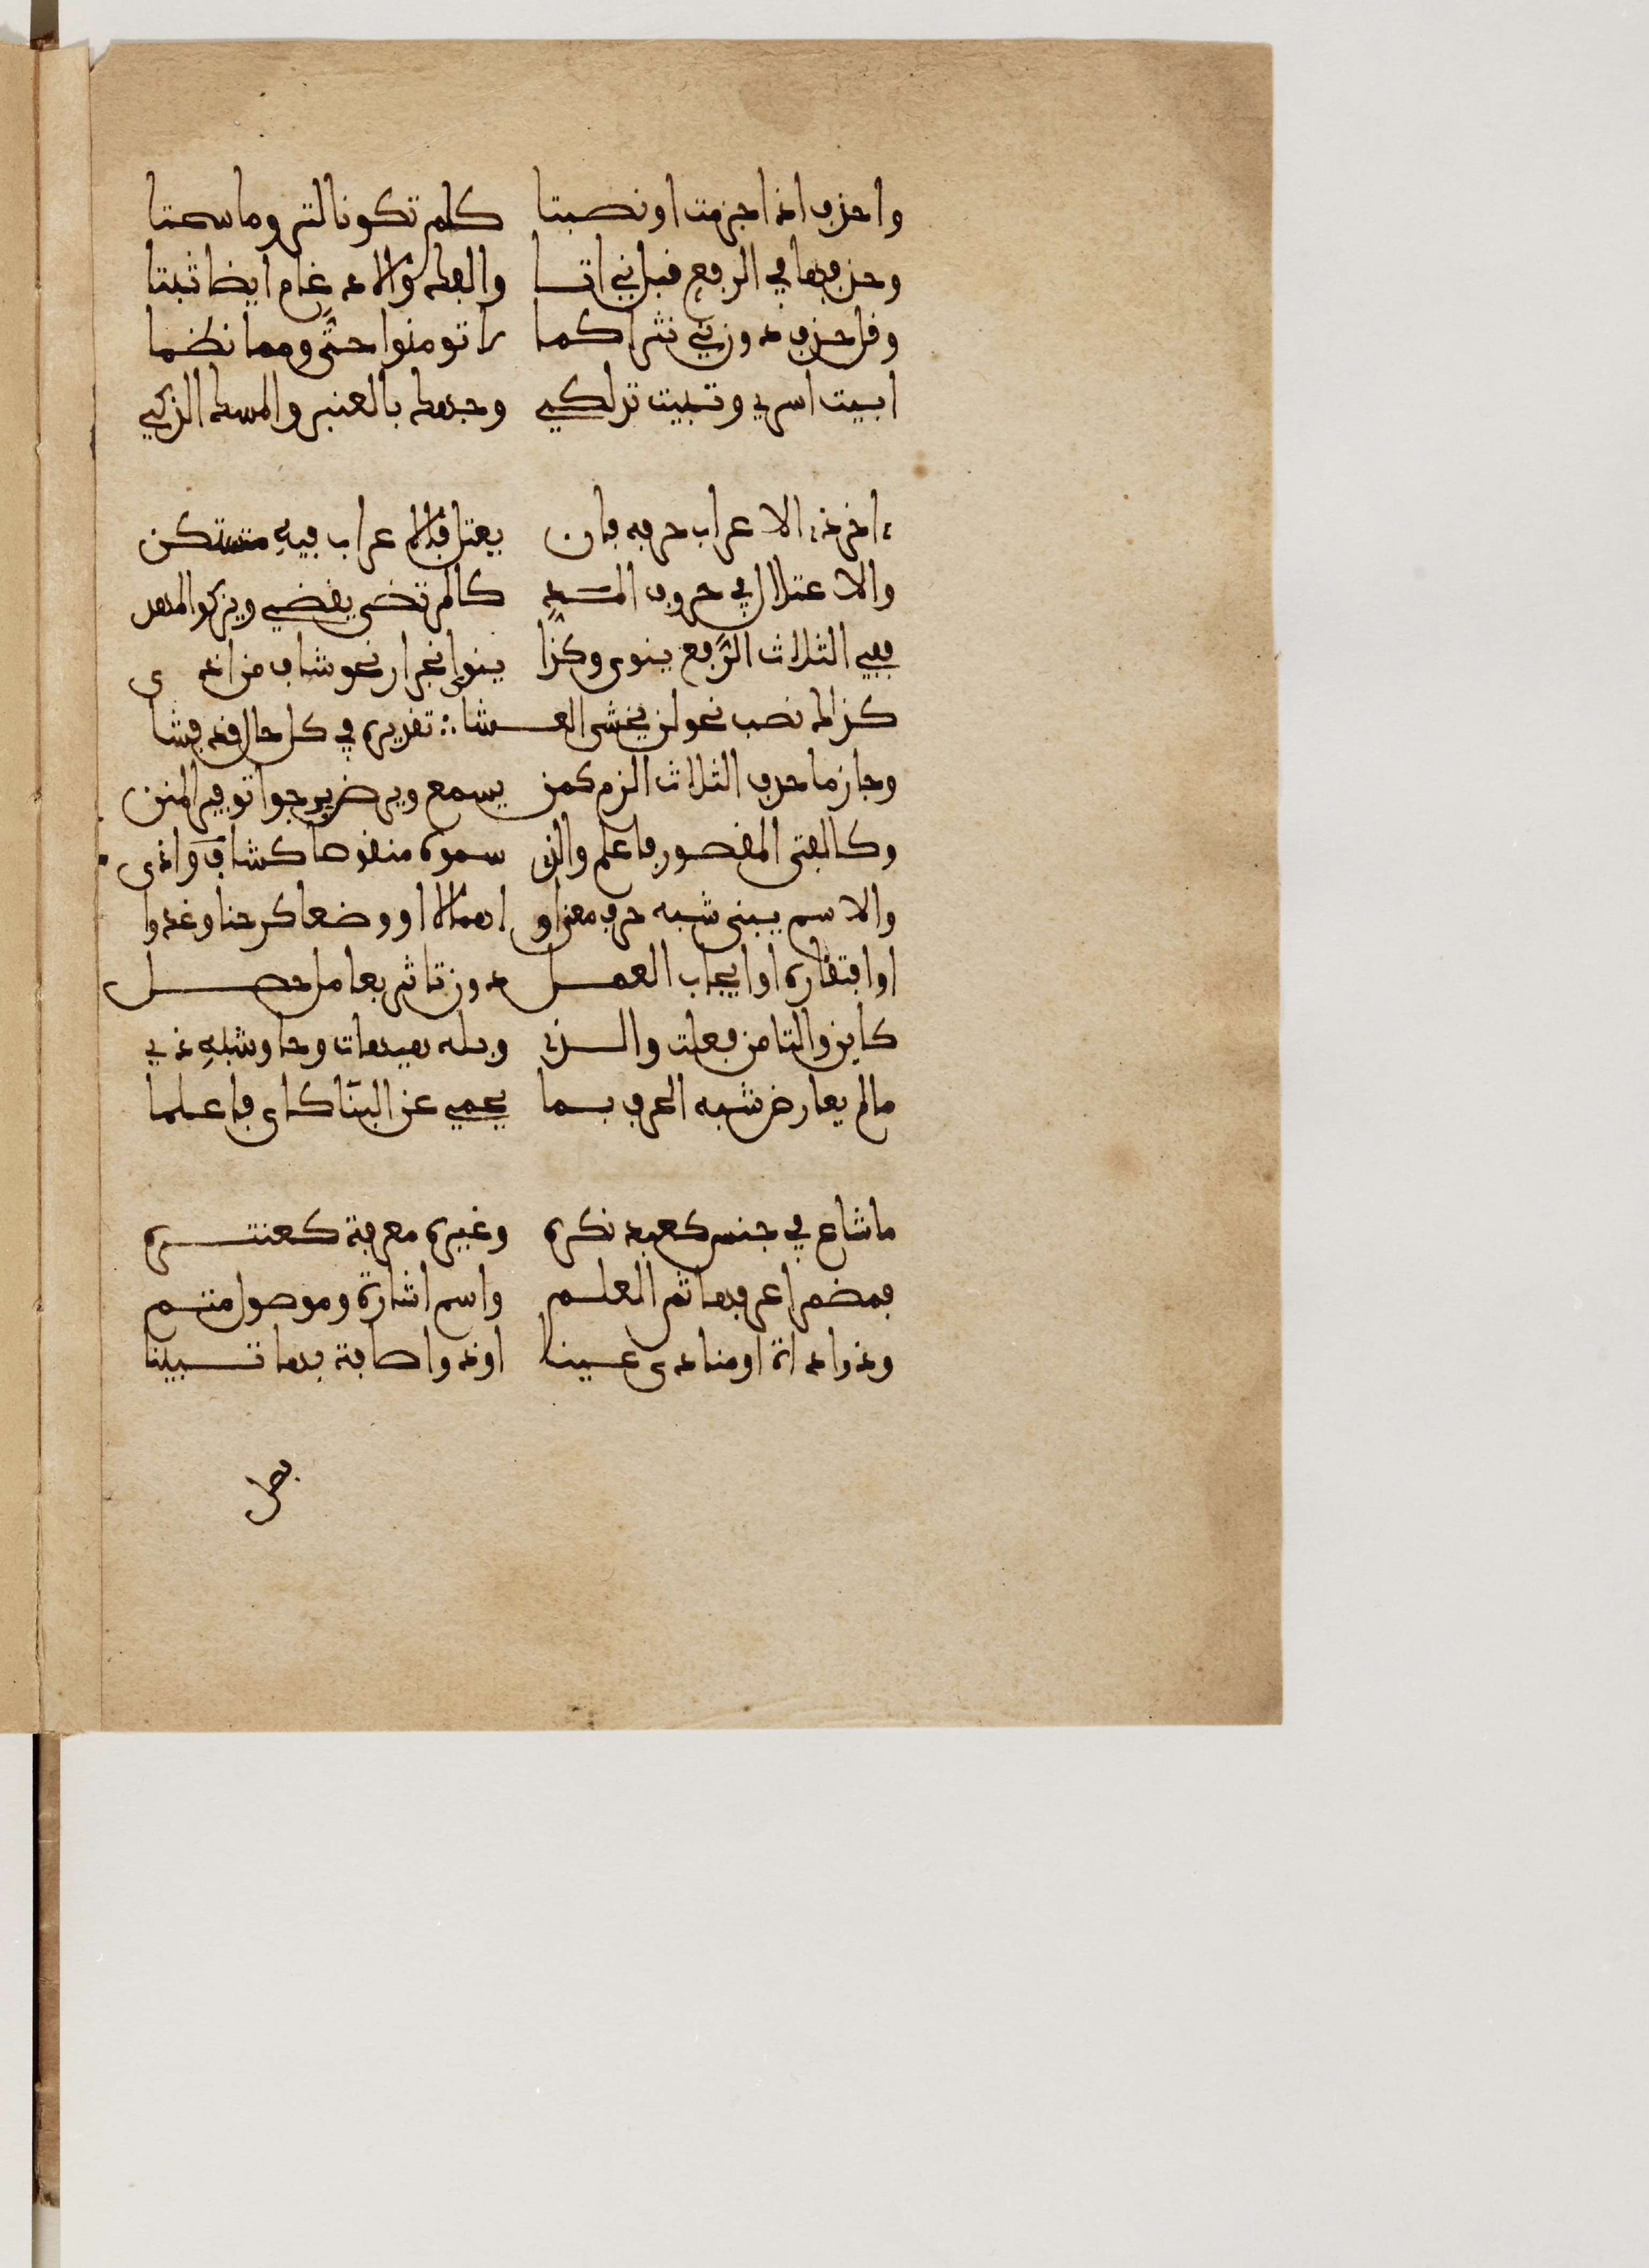 واحذف اذا جزمت او نصبتا كلم تكونا لتروما سحتا
وحذفها في الرفع قبل ني اتا والفك والادغام ايضا ثبتا
وقل حذف دون ني نثرا كما لا تومنوا حتى ومما نظما
ابيت اسري وتبيت تدلكي وجهك بالعنبر والمسك الذكي
اخر ذا الاعراب حرفه فان يعتل فالاعراب فيه مستكن
والاعتلال في حروف المد كالمرتضى يقضي ويزكوا المهد
ففي الثلاث الرفع ينوى وكذا ينوى انجرار نحو شاف من اذى
كذاك نصب نحو لن يخشى العشا تقديره في كل حال قد فشا
وجازما حرف الثلاث الزم كمن يسمع ويرض يرجوا توفير المنن
وكالفتى المقصور فاعلم والذي سموه منقوصا كشاف واذى
والاسم يبنى شبه حرف معنا او اهمالا او وضعا كرحنا وغدوا
او افتقاره او ايجاب العمل دون تاثر بعامل حصل
كاين والتا من فعلت والذي وبله هيهات وحا وشبه ذي
مالم يعارض شبه الحرف بما يحمي عن البنا كاي فاعلما
ما شاع في جنس كعبد نكره وغيره معرفة كعنتره
فمضمر اعرفها ثم العلم واسم اشارة وموصول متم
وذو اداة او منادى عينا او ذو اضافة بها تبينا
فصل